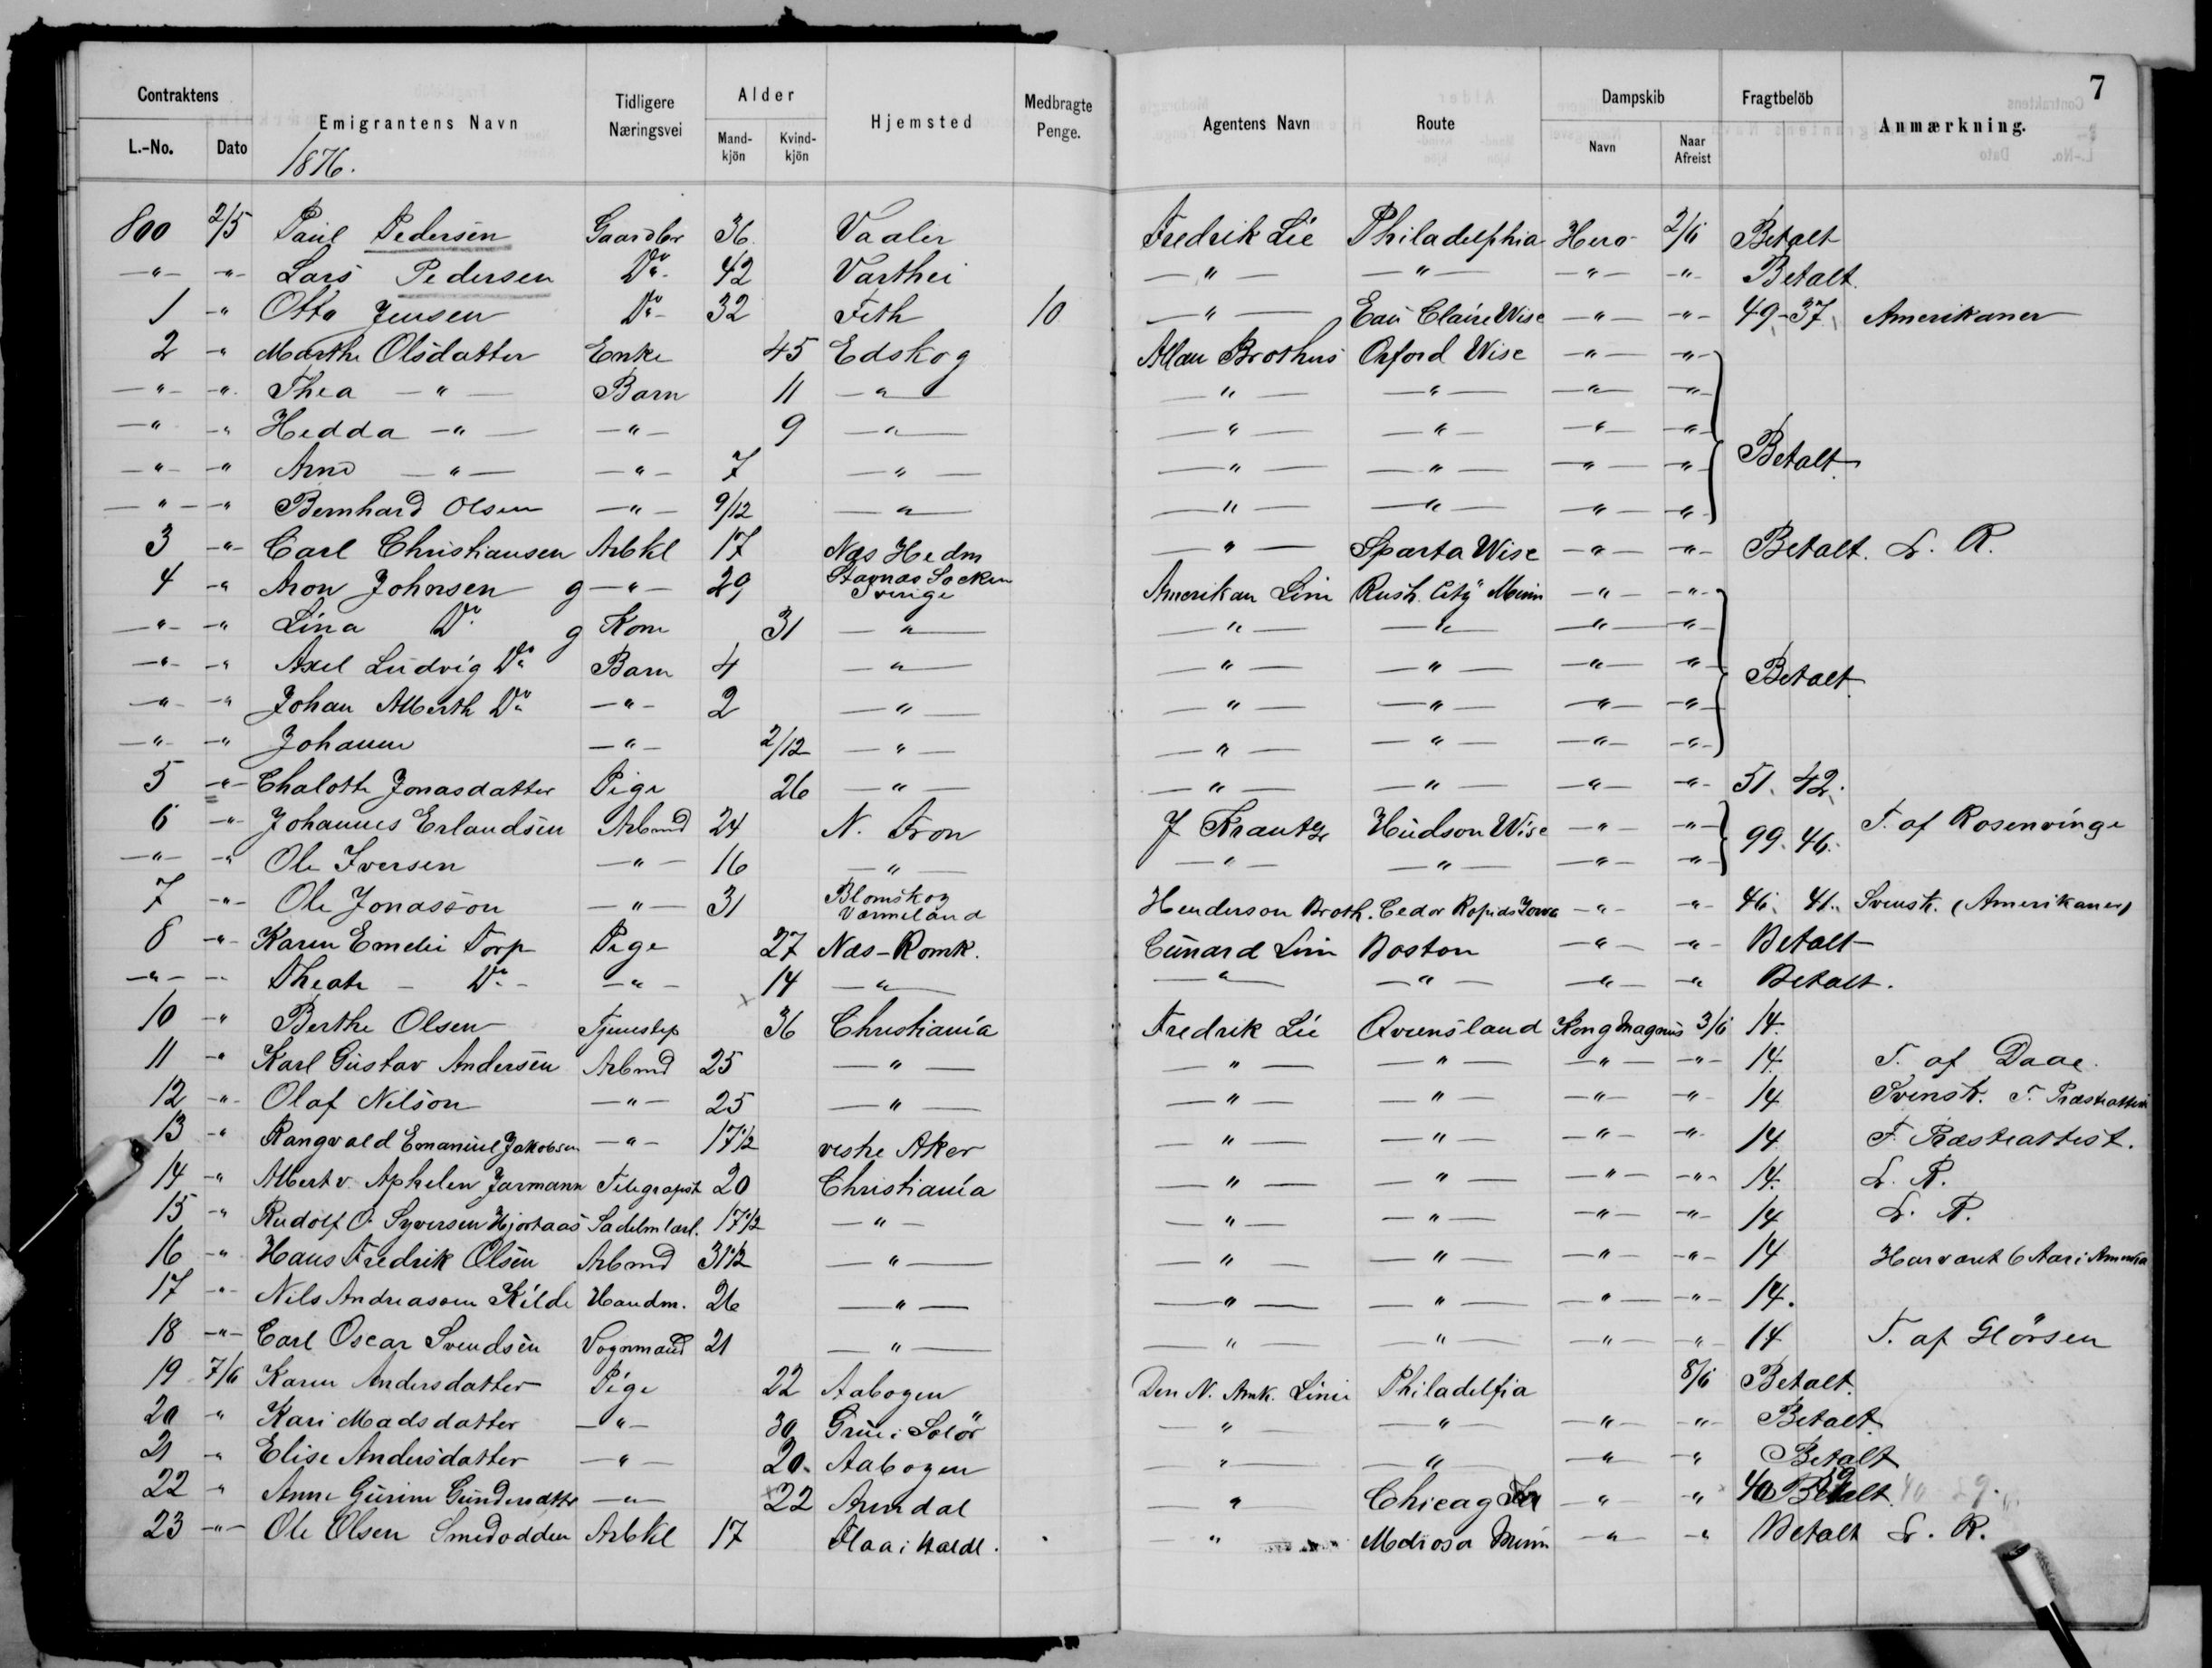 7
Contraktens Emigrantens Navn Tidligere Næringsvei Alder Hjemsted Medbragte Penge. Agentens Navn Route Dampskib Fragtbelöb Anmærkning.
L.-No. Dato 1876. Mand-kjön Kvind-kjön Navn Naar Afreist
800 2/5 Paul Pedersen Gaardbr 36 Vaaler Fredrik Lie Philadelphia Hero 2/6 Betalt
-"- -"- Lars Pedersen Do 42 Varthei -"- -"- -"- -"- Betalt.
1 -" Otto Jensen Do 32 Feth 10 -"- Eau Claire Wisc -"- -"- 49-37 Amerikaner
2 -" Marthe Olsdatter Enke 45 Edskog Allan Brothers Oxford Wisc -"- -"-
-"- -"- Thea -"- Barn 11 -"- -"- -"- -"- -"-
-" -" Hedda -"- -"- 9 -"- -"- -"- -"- -"-
-"- -" Arne -"- -"- 7 -"- -"- -"- -"- -"- Betalt
-"- -" Bernhard Olsen -"- 9/12 -"- -"- -"- -"- -"-
3 -"- Carl Christiansen Arbkl 17 Næs Hedm -"- Sparta Wisc -"- -"- Betalt. L. R.
4 -" Aron Johnsen g -"- 29 Stavnäs Socken Sverige Amerikan Linie Rush City Minn -"- -"-
-"- -" Lina Do g Kone 31 -"- -"- -"- -"- -"-
-"- -" Axel Ludvig Do Barn 4 -"- -"- -"- -"- -"- Betalt
-"- -" Johan Alberth Do -"- 2 -"- -"- -"- -"- -"-
-"- -" Johanne -"- 2/12 -"- -"- -"- -"- -"-
5 -"- Chalotte Jonasdatter Pige 26 -"- -"- -"- -"- -"- 51. 42.
6 -"- Johannes Erlandsen Arbmd 24 N. Fron J Krantz Hudson Wisc -"- -"- 99. 46. T. af Rosenvinge
-"- -" Ole Iversen -"- 16 -"- -"- -"- -"- -"-
7 -"- Ole Jonasson -"- 31 Blomskog Värmeland Henderson Broth. Cedar Rapids Iowa -"- -"- 46. 41. Svensk. (Amerikaner)
8 -"- Karen Emelie Torp Pige 27 Næs-Romk. Cunard Linie Boston -"- -"- Betalt
-"- -- Thea Do -"- 14 -"- -"- -"- -"- -" Betalt.
10 -" Berthe Olsen Tjenstep 36 Christiania Fredrik Lie Qvensland Kong Magnus 3/6 14.
11 -" Karl Gustav Andersen Arbmd 25 -"- -"- -"- -"- -"- 14. T. af Daae.
12 -"- Olaf Nilson -"- 25 -"- -"- -"- -"- -"- 14 Svensk. T. Præstattest
13 -" Rangvald Emanuel Jakobsen -"- 17 1/2 vestre Aker -"- -"- -"- -"- 14 F. Præsteattest.
14 -" Albert v. Aphelen Jarmann Telegrapist 20 Christiania -"- -"- -"- -"- 14. L. R.
15 -" Rudolf O. Syversen Hjortaas Sadelm lærl. 17 1/2 -"- -"- -"- -"- -"- 14 L. R.
16 -" Hans Fredrik Olsen Arbmd 31 1/2 -"- -"- -"- -"- -"- 14 Har været 6 Aar i Amerika
17 -"- Nils Andreassen Kilde Handm. 26 -"- -"- -"- -"- -"- 14.
18 -"- Carl Oscar Svendsen Vognmand 21 -"- -"- -"- -"- -" 14 T. af Glørsen
19 7/6 Karen Andersdatter Pige 22 Aabogen Den N. Amk. Linie Philadelfia 8/6 Betalt.
20 -" Kari Madsdatter -"- 30 Grue i Solör -"- -"- -"- -"- Betalt
21 -" Elise Andersdatter -"- 20. Aabogen -"- -"- -"- -" Betalt
22 -" Anne Gurine Gundersdttr -"- 22 Arendal -"- Chicag -"- -" 40 Betalt. 40 29.
23 -"- Ole Olsen Smedodden Arbkl 17 Flaa i Haldl. -"- Minn -"- -" Betalt L. R.